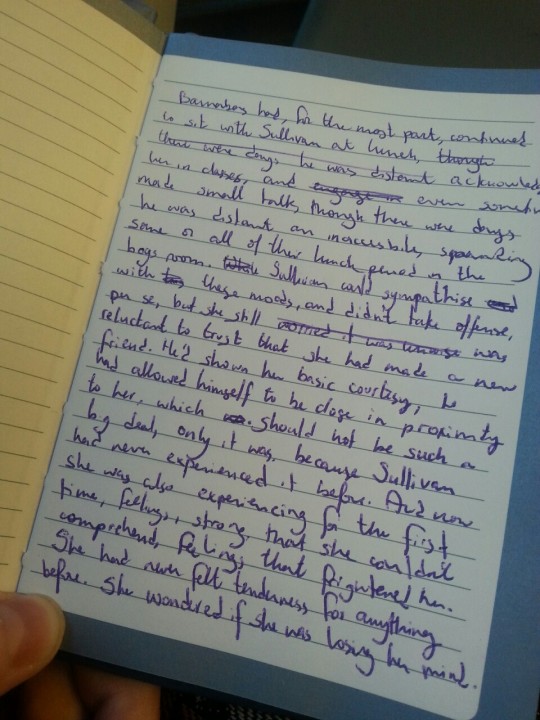 Barnabas had, for the most part, continued
to sit with Sullivan at lunch, though
there were days he was distant acknowledg
her in classes, and engage in even someti
made small talk, though there were days
he was distant an inaccessible, spending
some or all of their lunch period in the
boys room. Sullivan could sympathise and
with these moods, and didn't take offense,
per se, but she still worried it was unwise was
reluctant to trust that she had made a new
friend. He'd shown her basic courtesy, &
had allowed himself to be close in proximity
to her, which was should not be such a
big deal, only it was, because Sullivan
had never experienced it before. And now
she was also experiencing for the first
time, feelings, strong that she couldn't
comprehend, feelings that frightened her.
She had never felt tenderness for anything
before. She wondered if she was losing her mind.